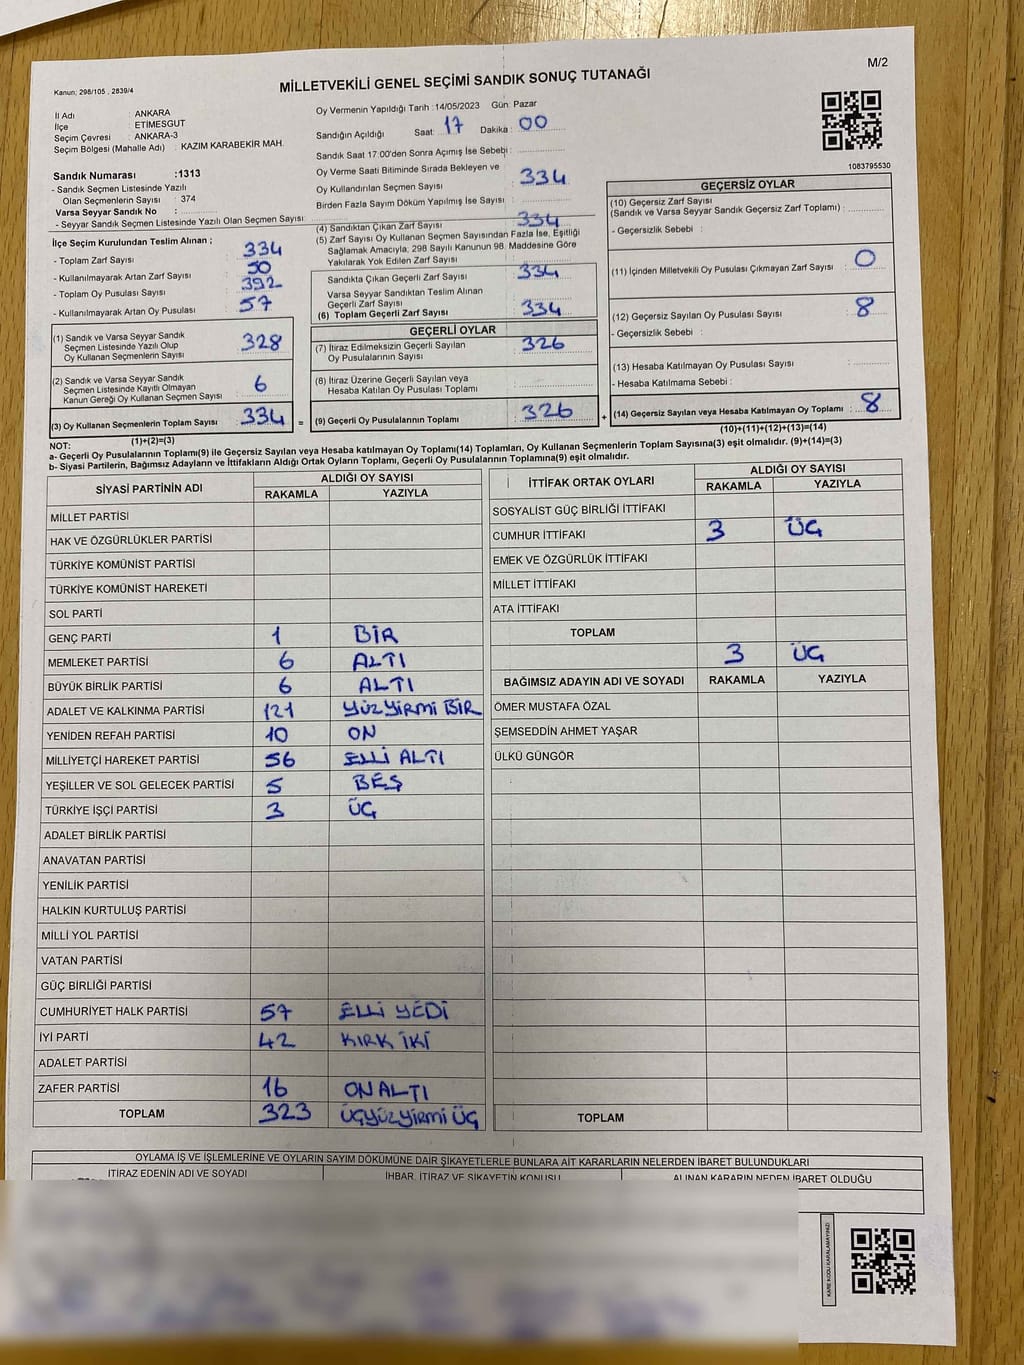 M/2
MİLLETVEKİLİ GENEL SEÇİMİ SANDIK SONUÇ TUTANAĞI
Kanun; 298/105 , 2839/4
İl Adı : ANKARA
İlçe : ETİMESGUT
Seçim Çevresi : ANKARA-3
Seçim Bölgesi (Mahalle Adı) : KAZIM KARABEKİR MAH.
Sandık Numarası :1313
- Sandık Seçmen Listesinde Yazılı
Olan Seçmenlerin Sayısı : 374
Varsa Seyyar Sandık No :
- Seyyar Sandık Seçmen Listesinde Yazılı Olan Seçmen Sayısı :
Oy Vermenin Yapıldığı Tarih :14/05/2023 Gün: Pazar
Sandığın Açıldığı Saat: 17 Dakika : 00
Sandık Saat 17:00'den Sonra Açımış İse Sebebi :
Oy Verme Saati Bitiminde Sırada Bekleyen ve
Oy Kullandırılan Seçmen Sayısı : 334
Birden Fazla Sayım Döküm Yapılmış İse Sayısı :
1083795530
İlçe Seçim Kurulundan Teslim Alınan ;
- Toplam Zarf Sayısı : 334
- Kullanılmayarak Artan Zarf Sayısı : 50
- Toplam Oy Pusulası Sayısı : 392
- Kullanılmayarak Artan Oy Pusulası : 57
(1) Sandık ve Varsa Seyyar Sandık
Seçmen Listesinde Yazılı Olup
Oy Kullanan Seçmenlerin Sayısı : 328
(2) Sandık ve Varsa Seyyar Sandık
Seçmen Listesinde Kayıtlı Olmayan
Kanun Gereği Oy Kullanan Seçmen Sayısı : 6
(3) Oy Kullanan Seçmenlerin Toplam Sayısı : 334 =
(1)+(2)=(3)
(4) Sandıktan Çıkan Zarf Sayısı : 334
(5) Zarf Sayısı Oy Kullanan Seçmen Sayısından Fazla İse, Eşitliği
Sağlamak Amacıyla; 298 Sayılı Kanunun 98. Maddesine Göre
Yakılarak Yok Edilen Zarf Sayısı :
Sandıkta Çıkan Geçerli Zarf Sayısı : 334
Varsa Seyyar Sandıktan Teslim Alınan
Geçerli Zarf Sayısı :
(6) Toplam Geçerli Zarf Sayısı : 334
GEÇERLİ OYLAR
(7) İtiraz Edilmeksizin Geçerli Sayılan
Oy Pusulalarının Sayısı : 326
(8) İtiraz Üzerine Geçerli Sayılan veya
Hesaba Katılan Oy Pusulası Toplamı :
(9) Geçerli Oy Pusulalarının Toplamı : 326 +
GEÇERSİZ OYLAR
(10) Geçersiz Zarf Sayısı
(Sandık ve Varsa Seyyar Sandık Geçersiz Zarf Toplamı) :
- Geçersizlik Sebebi :
(11) İçinden Milletvekili Oy Pusulası Çıkmayan Zarf Sayısı : 0
(12) Geçersiz Sayılan Oy Pusulası Sayısı : 8
- Geçersizlik Sebebi :
(13) Hesaba Katılmayan Oy Pusulası Sayısı :
- Hesaba Katılmama Sebebi :
(14) Geçersiz Sayılan veya Hesaba Katılmayan Oy Toplamı : 8
(10)+(11)+(12)+(13)=(14)
NOT:
a- Geçerli Oy Pusulalarının Toplamı(9) ile Geçersiz Sayılan veya Hesaba katılmayan Oy Toplamı(14) Toplamları, Oy Kullanan Seçmenlerin Toplam Sayısına(3) eşit olmalıdır. (9)+(14)=(3)
b- Siyasi Partilerin, Bağımsız Adayların ve İttifakların Aldığı Ortak Oyların Toplamı, Geçerli Oy Pusulalarının Toplamına(9) eşit olmalıdır.
SİYASİ PARTİNİN ADI ALDIĞI OY SAYISI
RAKAMLA YAZIYLA
MİLLET PARTİSİ
HAK VE ÖZGÜRLÜKLER PARTİSİ
TÜRKİYE KOMÜNİST PARTİSİ
TÜRKİYE KOMÜNİST HAREKETİ
SOL PARTİ
GENÇ PARTİ 1 BİR
MEMLEKET PARTİSİ 6 ALTI
BÜYÜK BİRLİK PARTİSİ 6 ALTI
ADALET VE KALKINMA PARTİSİ 121 YÜZ YİRMİ BİR
YENİDEN REFAH PARTİSİ 10 ON
MİLLİYETÇİ HAREKET PARTİSİ 56 ELLİ ALTI
YEŞİLLER VE SOL GELECEK PARTİSİ 5 BEŞ
TÜRKİYE İŞÇİ PARTİSİ 3 ÜÇ
ADALET BİRLİK PARTİSİ
ANAVATAN PARTİSİ
YENİLİK PARTİSİ
HALKIN KURTULUŞ PARTİSİ
MİLLİ YOL PARTİSİ
VATAN PARTİSİ
GÜÇ BİRLİĞİ PARTİSİ
CUMHURİYET HALK PARTİSİ 57 ELLİ YEDİ
İYİ PARTİ 42 KIRK İKİ
ADALET PARTİSİ
ZAFER PARTİSİ 16 ON ALTI
TOPLAM 323 ÜÇYÜZYİRMİ ÜÇ
İTTİFAK ORTAK OYLARI ALDIĞI OY SAYISI
RAKAMLA YAZIYLA
SOSYALİST GÜÇ BİRLİĞİ İTTİFAKI
CUMHUR İTTİFAKI 3 ÜÇ
EMEK VE ÖZGÜRLÜK İTTİFAKI
MİLLET İTTİFAKI
ATA İTTİFAKI
TOPLAM 3 ÜÇ
BAĞIMSIZ ADAYIN ADI VE SOYADI RAKAMLA YAZIYLA
ÖMER MUSTAFA ÖZAL
ŞEMSEDDİN AHMET YAŞAR
ÜLKÜ GÜNGÖR
TOPLAM
OYLAMA İŞ VE İŞLEMLERİNE VE OYLARIN SAYIM DÖKÜMÜNE DAİR ŞİKAYETLERLE BUNLARA AİT KARARLARIN NELERDEN İBARET BULUNDUKLARI
İTİRAZ EDENİN ADI VE SOYADI İHBAR, İTİRAZ VE ŞİKAYETİN KONUSU ALINAN KARARIN NEDEN İBARET OLDUĞU
KARE KODU KARALAMAYINIZ!